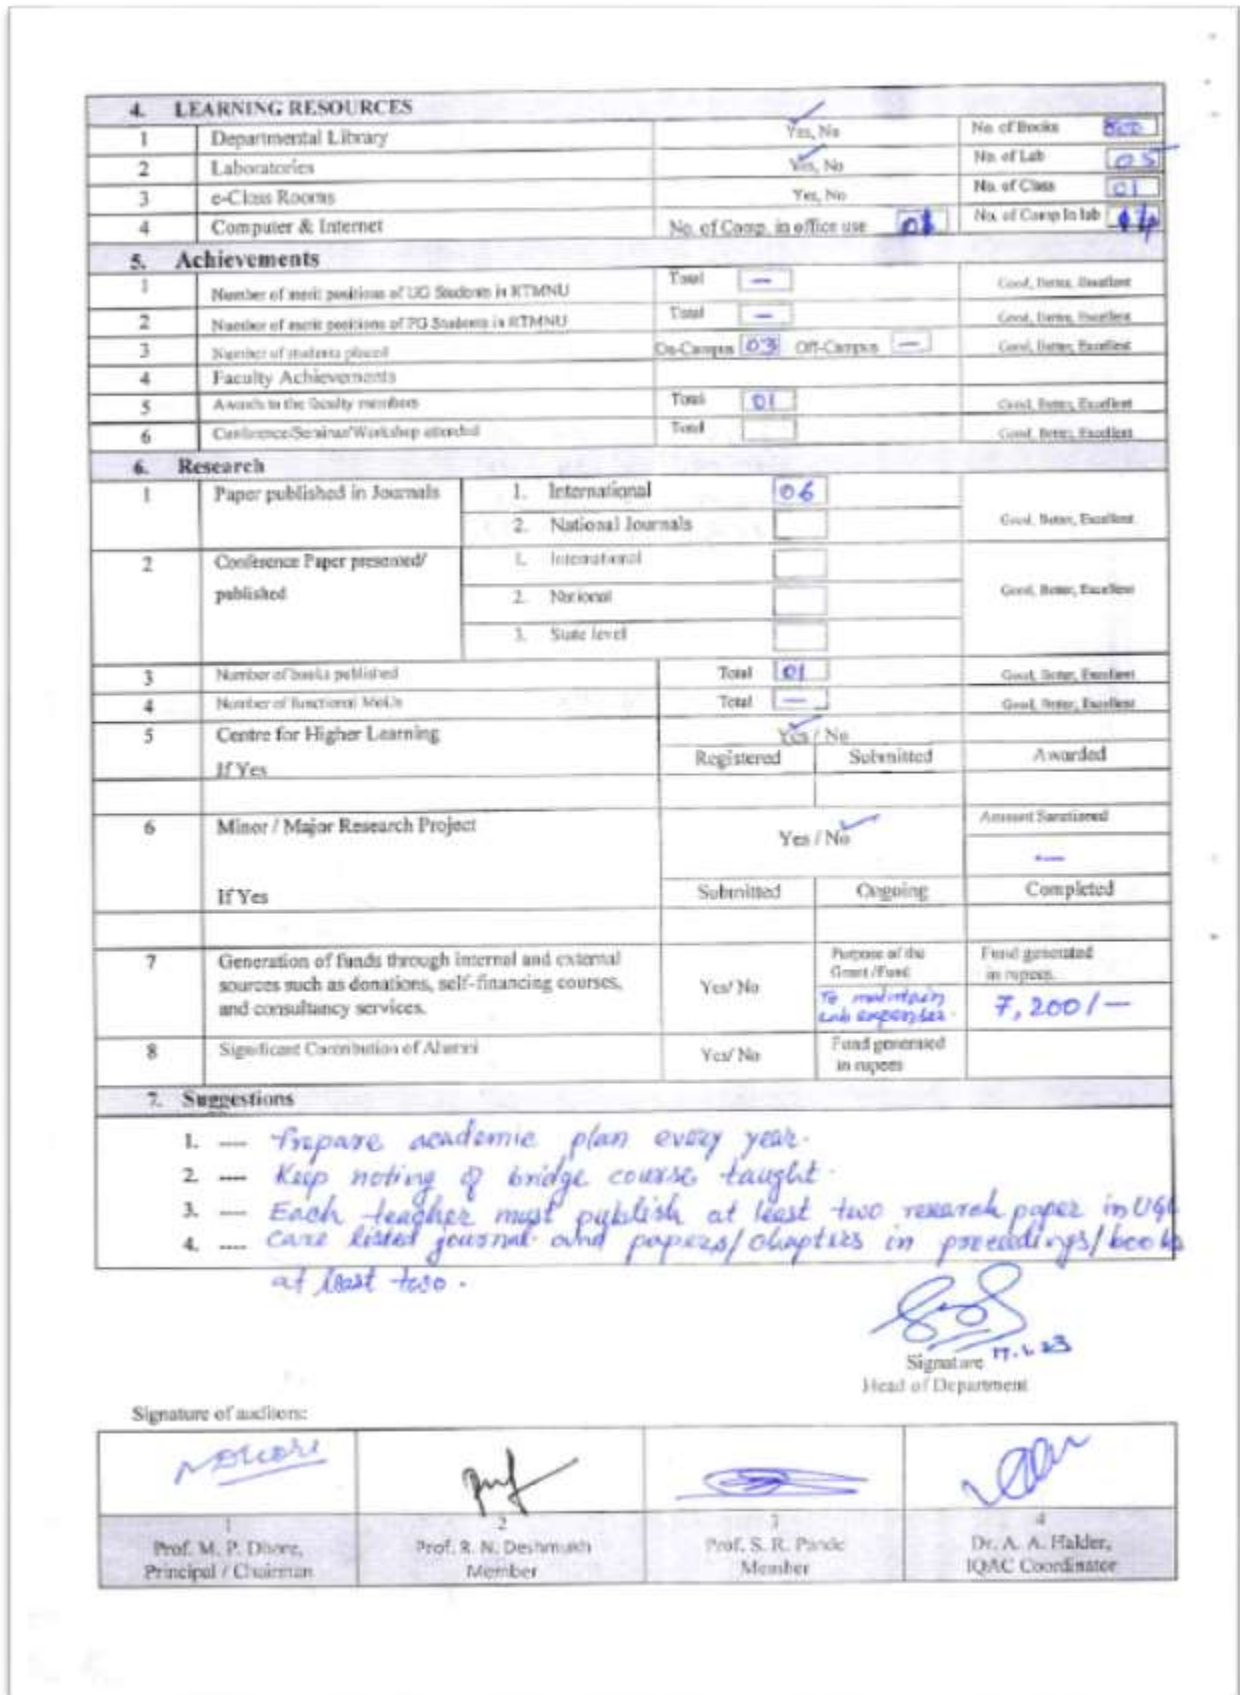 4. LEARNING RESOURCES
1 Departmental Library Yes, No No. of Books
2 Laboratories Yes, No No. of Lab 05
3 e-Class Rooms Yes, No No. of Class 01
4 Computer & Internet No. of Comp. in office use No. of Comp In lab
5. Achievements
1 Number of merit positions of UG Students in RTMNU Total — Good, Better, Excellent
2 Number of merit positions of PG Students in RTMNU Total — Good, Better, Excellent
3 Number of students placed On-Campus 03 Off-Campus — Good, Better, Excellent
4 Faculty Achievements
5 Awards to the faculty members Total 01 Good, Better, Excellent
6 Conference/Seminar/Workshop attended Total Good, Better, Excellent
6. Research
1 Paper published in Journals 1. International 06
2. National Journals Good, Better, Excellent
2 Conference Paper presented/ 1. International
published 2. National Good, Better, Excellent
3. State level
3 Number of books published Total 01 Good, Better, Excellent
4 Number of functional MoUs Total — Good, Better, Excellent
5 Centre for Higher Learning Yes / No
If Yes Registered Submitted Awarded
6 Minor / Major Research Project Yes / No Amount Sanctioned
—
If Yes Submitted Ongoing Completed
7 Generation of funds through internal and external
sources such as donations, self-financing courses,
and consultancy services. Yes/ No
Purpose of the
Grant /Fund
To maintain
Lab expenses.
Fund generated
in rupees.
7,200/—
8 Significant Contribution of Alumni Yes/ No Fund generated
in rupees
7. Suggestions
1. ---- Prepare academic plan every year.
2. ---- Keep noting of bridge course taught.
3. ---- Each teacher must publish at least two research paper in UGC
4. ---- care listed journal and papers/chapters in preceedings/books
at least two.
Signature
Head of Department
Signature of auditors:
1
Prof. M. P. Dhore,
Principal / Chairman
2
Prof. R. N. Deshmukh
Member
3
Prof. S. R. Pande
Member
4
Dr. A. A. Halder,
IQAC Coordinator